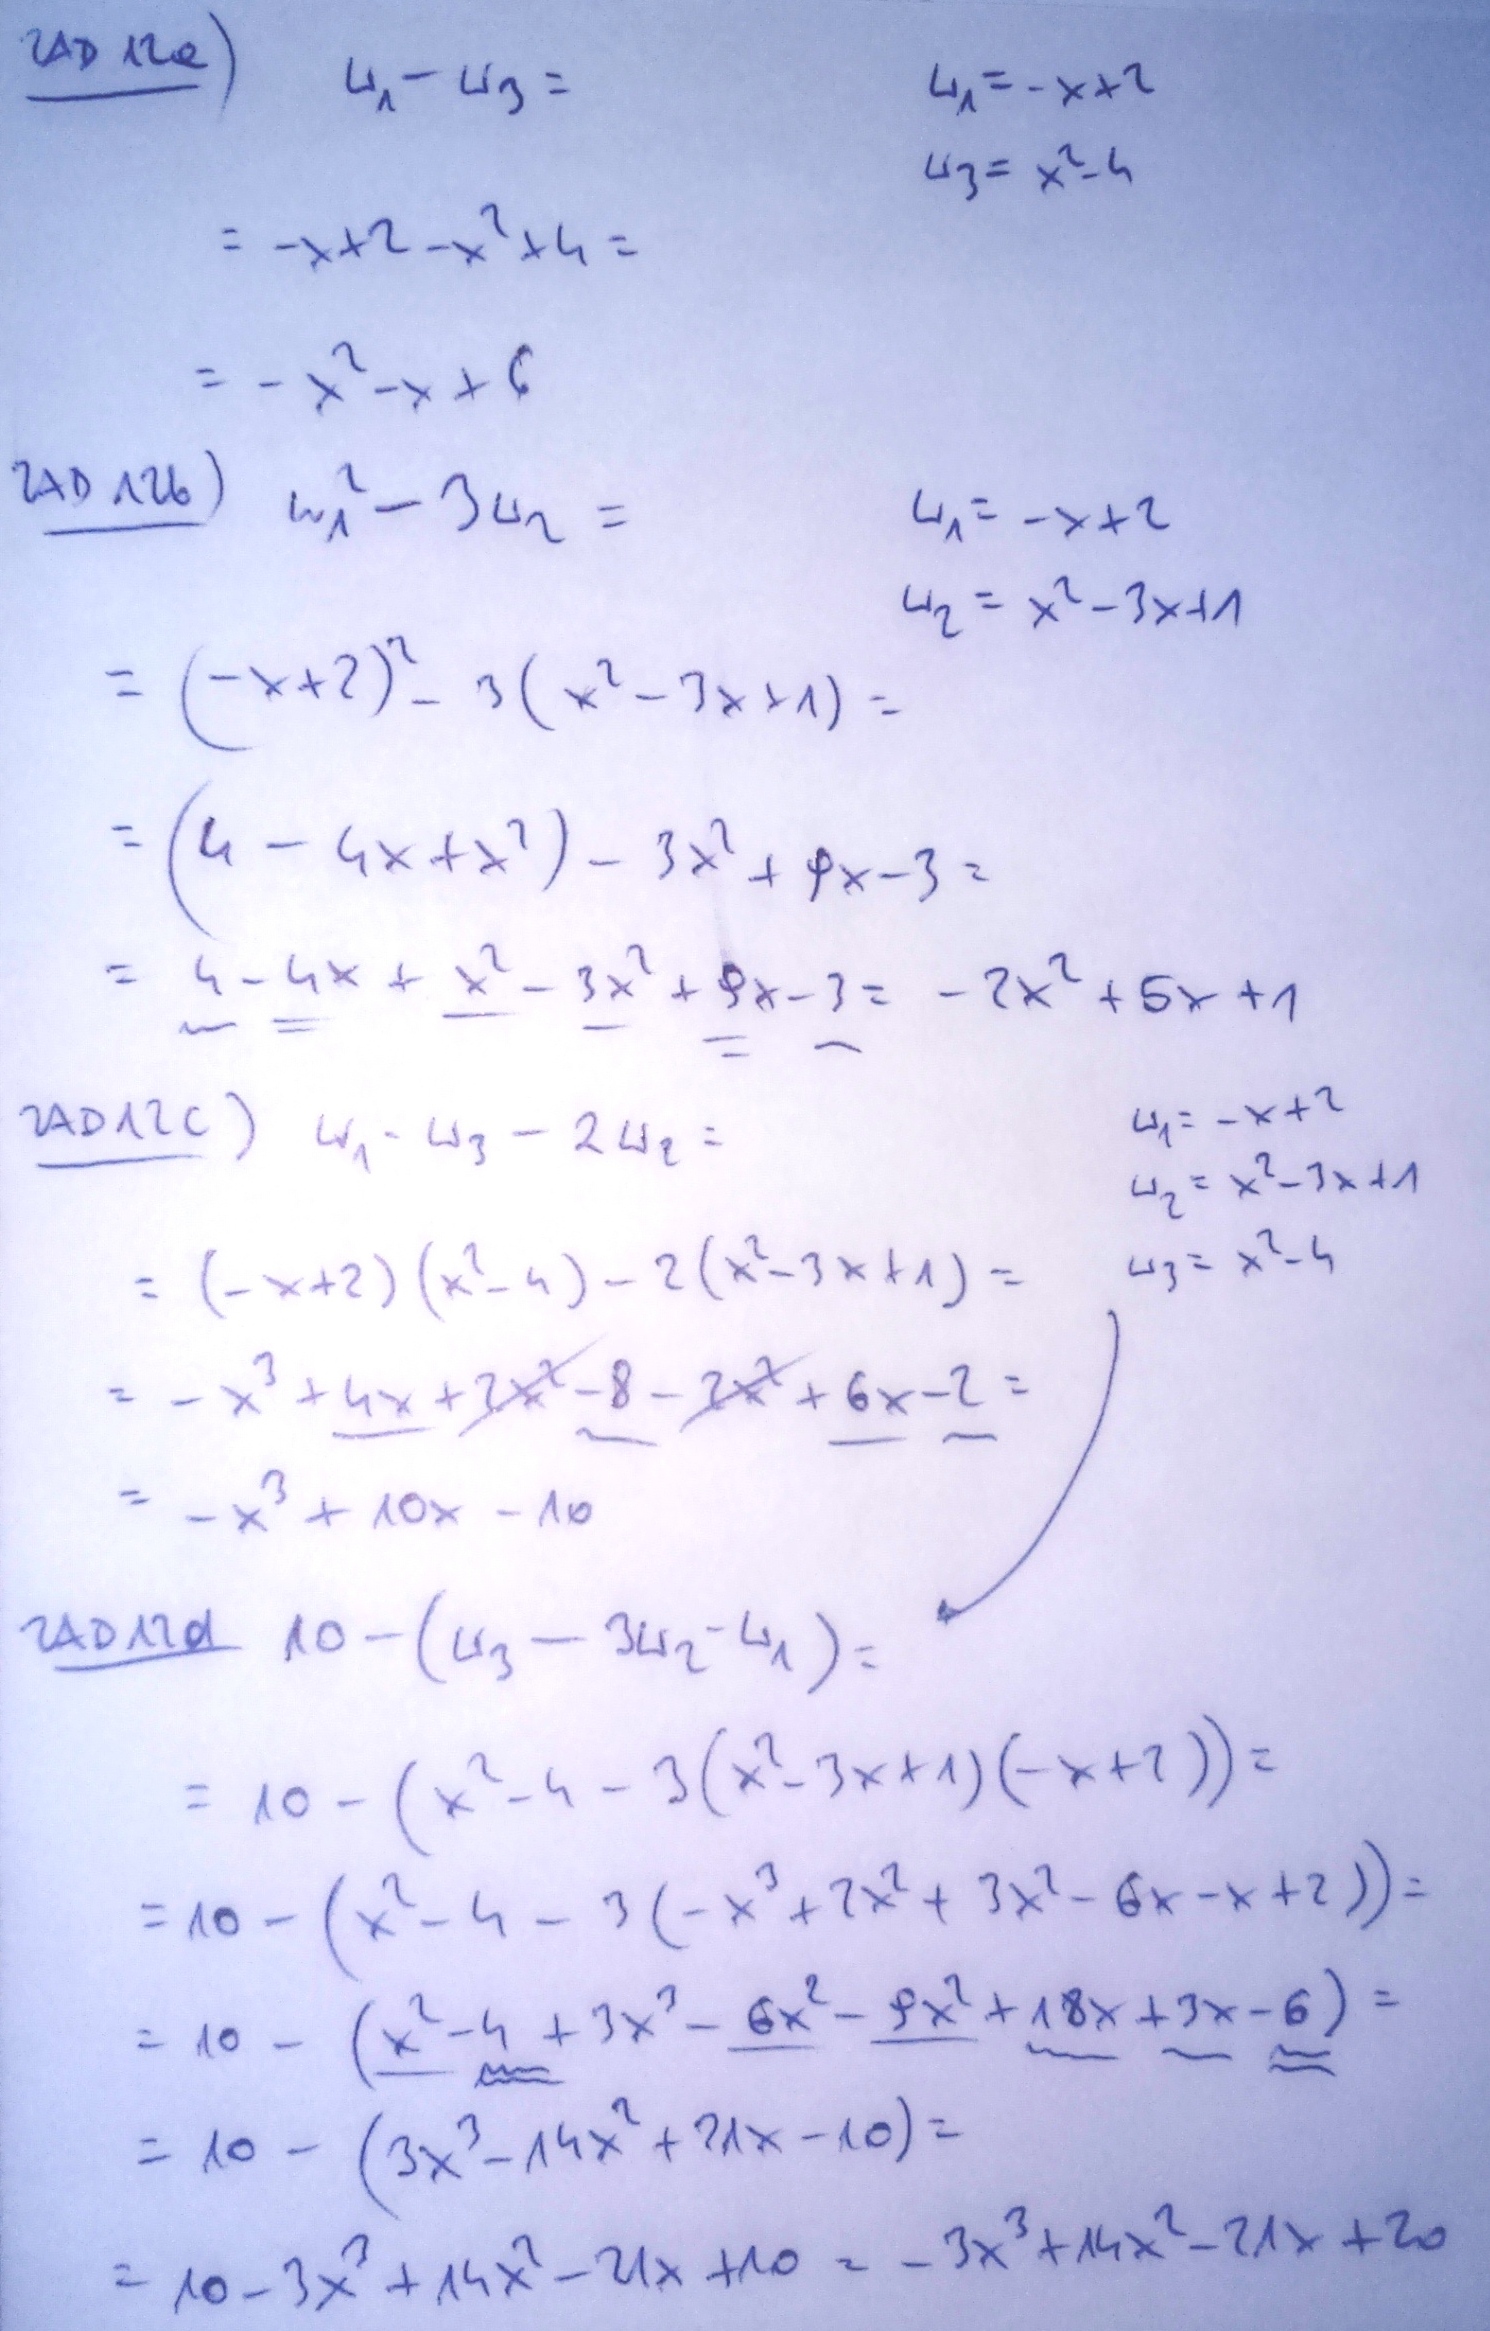 ZAD 12a) w₁ - w₃ =
w₁ = -x+2
w₃ = x²-4
= -x+2 -x²+4 =
= -x²-x+6
ZAD 12b) w₁² - 3w₂ =
w₁ = -x+2
w₂ = x²-3x+1
= (-x+2)² - 3(x²-3x+1) =
= (4 - 4x+x²) - 3x² + 9x-3 =
= 4 - 4x + x² - 3x² + 9x-3 = -2x² + 5x + 1
ZAD 12c) w₁·w₃ - 2w₂ =
w₁ = -x+2
w₂ = x²-3x+1
w₃ = x²-4
= (-x+2)(x²-4) - 2(x²-3x+1) =
= -x³ + 4x + 2x² - 8 - 2x² + 6x - 2 =
= -x³ + 10x - 10
ZAD 12d 10 - (w₃ - 3w₂·w₁) =
= 10 - (x²-4 - 3(x²-3x+1)(-x+2)) =
= 10 - (x²-4 - 3(-x³+2x²+3x²-6x-x+2)) =
= 10 - (x²-4+3x³-6x²-9x²+18x+3x-6) =
= 10 - (3x³-14x²+21x-10) =
= 10-3x³+14x²-21x+10 = -3x³+14x²-21x+20